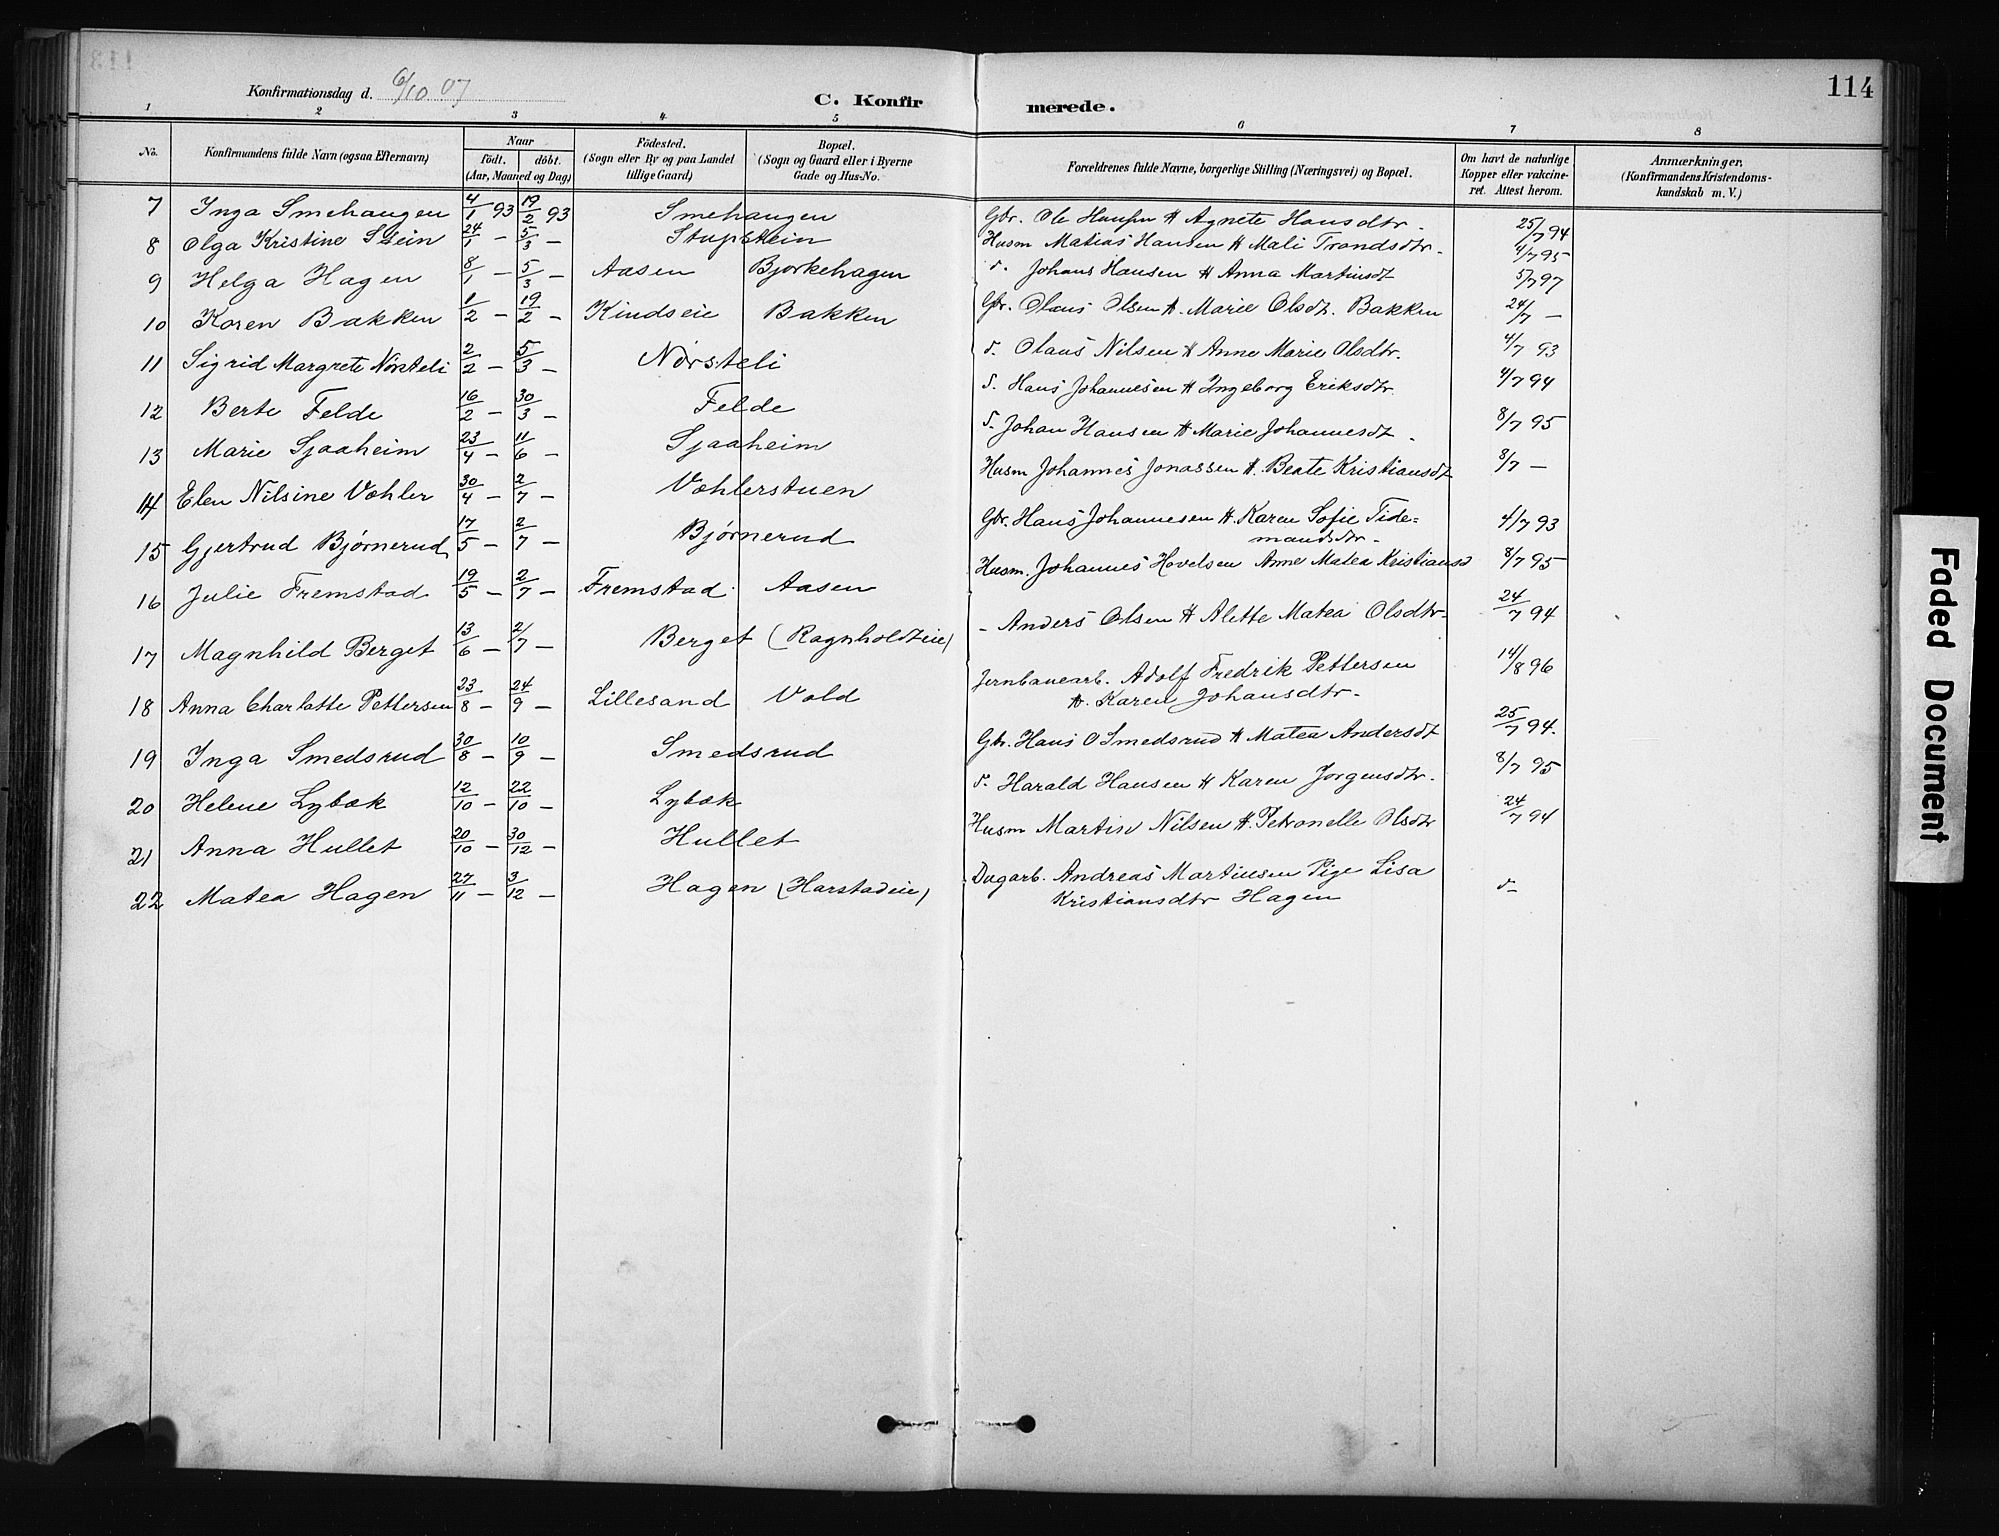 Konfirmationsdag d. 6/10 07
C. Konfirmerede.
114
1 2 3 4 5 6 7 8
No.
Konfirmandens fulde Navn (ogsaa Efternavn)
Naar
födt. döbt.
(Aar, Maaned og Dag)
Födested.
(Sogn eller By og paa Landet
tillige Gaard)
Bopæl.
(Sogn og Gaard eller i Byerne
Gade og Hus-No.
Forældrenes fulde Navne, borgerlige Stilling (Næringsvei) og Bopæl.
Om havt de naturlige
Kopper eller vakcine-
ret. Attest herom.
Anmærkninger,
(Konfirmandens Kristendoms-
kundskab m. V.)
7 Inga Smehaugen 4/1 93 19/2 93 Smehaugen Gbr. Ole Agnete Hansdtr. 25/7 94
8 Olga Kristine Stein 24/1 - 5/3 - Stupstein Husm Matias Hansen Mali Trondsdtr. 4/7 95
9 Helga Hagen 8/1 - 5/3 - Aasen Bjorkehagen d. Johans Hansen Anna Martinsdt 5/7 97
10 Karen Bakken 1/2 - 19/2 - Kindseie Bakken Gbr. Olaus Olsen Marie Olsdt. Bakken 24/7 -
11 Sigrid Margrete Nørsteli 2/2 - 5/3 - Nørsteli d. Olaus Nilsen Anne Marie Olsdtr. 4/7 93
12 Berte Felde 16/2 - 30/3 - Felde d. Hans Johannesen Ingeborg Eriksdtr. 4/7 94
13 Marie Sjaaheim 23/4 - 11/6 - Sjaaheim d. Johan Hansen Marie Johannesdt. 8/7 95
14 Elen Nilsine Væhler 30/4 - 2/7 - Væhlerstuen Husm Johannes Jonassen Beate Kristiansdt 8/7 -
15 Gjertrud Bjørnerud 17/5 - 2/7 - Bjørnerud Gbr. Hans Johannesen Karen Sofie Tide=
mandsdtr. 4/7 93
16 Julie Fremstad 19/5 - 2/7 - Fremstad Aasen Husm. Johannes Hovelsen Anne Matea Kristiansd 8/7 95
17 Magnhild Berget 13/6 - 2/7 - Berget (Ragnholdteie) - Anders Olsen Alette Matea Olsdtr. 24/7 94
18 Anna Charlotte Pettersen 23/8 - 24/9 - Lillesand Vold Jernbanearb. Adolf Fredrik Pettersen
Karen Johansdtr. 14/8 96
19 Inga Smedsrud 30/8 - 10/9 - Smedsrud Gbr. Hans O Smedsrud Matea Andersdt 25/7 94.
20 Helene Lybæk 12/10 - 22/10 - Lybæk d. Harald Hansen Karen Jorgensdtr. 8/7 95
21 Anna Hullet 20/10 - 30/12 - Hullet Husm Martin Nilsen Petronelle Olsdtr 24/7 94
22 Matea Hagen 27/11 - 3/12 - Hagen (Harstadeie) Dagarb. Andreas Martinsen Pige Lisa
Kristiansdtr Hagen d-
Faded Document